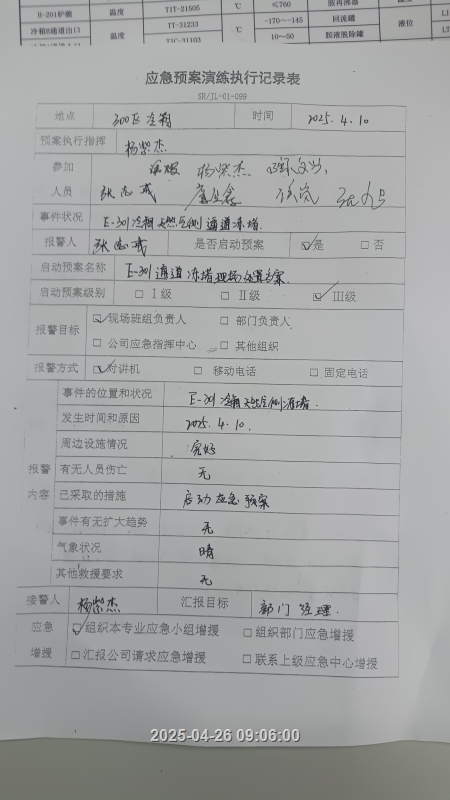 H-201炉膛 温度 TIT-21505 ℃ ≤760 胺再沸器 温度
冷箱B通道出口 温度 TT-31233 ℃ -170~-145 回流罐 液位
TIC-31103 10~50 胺液脱除罐
应急预案演练执行记录表
SR/JL-01-099
地点 300区冷箱 时间 2025.4.10
预案执行指挥 杨紫杰
参加 杨紫杰、
人员 张志成
事件状况 E-301冷箱天然气侧通道冻堵.
报警人 张志成 是否启动预案 ☑是 □否
启动预案名称 E-301通道冻堵现场处置方案.
启动预案级别 □ Ⅰ级 □ Ⅱ级 ☑ Ⅲ级
报警目标 ☑现场班组负责人 □ 部门负责人
□ 公司应急指挥中心 □ 其他组织
报警方式 ☑对讲机 □ 移动电话 □ 固定电话
事件的位置和状况 E-301冷箱天然气侧冻堵.
发生时间和原因 2025.4.10.
周边设施情况 完好
报警 有无人员伤亡 无
内容 已采取的措施 启动应急预案
事件有无扩大趋势 无
气象状况 晴
其他救援要求 无
接警人 杨紫杰 汇报目标 部门经理.
应急 ☑组织本专业应急小组增援 □组织部门应急增援
增援 □汇报公司请求应急增援 □联系上级应急中心增援
2025-04-26 09:06:00